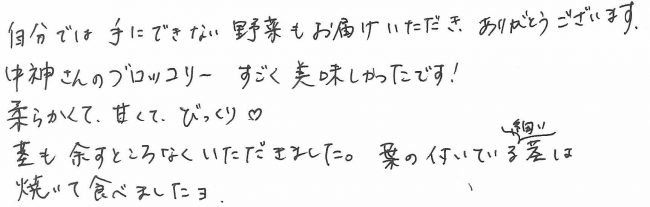 自分では手にできない野菜もお届けいただき、ありがとうございます。
中神さんのブロッコリー すごく美味しかったです!
柔らかくて、甘くて、びっくり♡
茎も余すところなくいただきました。葉の付いている細い茎は
焼いて食べましたヨ.